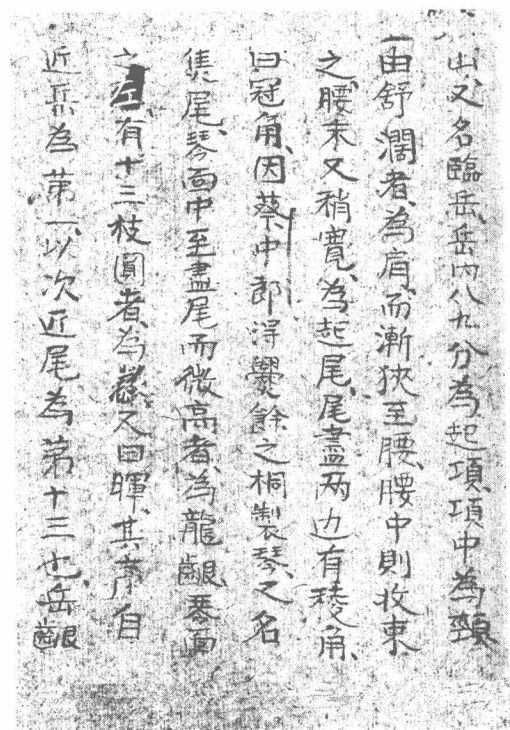 山又名臨岳、岳內八九分為起項、項中為頸、
由舒濶者、為肩、而漸狹至腰、腰中則收束
之、腰末又稍寬、為起尾、尾盡两边有稜角、
曰冠角、因蔡中郎得爨餘之桐製琴、又名
焦尾、琴面中至盡尾而微高者、為龍齦、琴面
之左、有十三枝圓者、為徽、又曰暉、其序自
近岳為第一、以次近尾為第十三也、岳齦